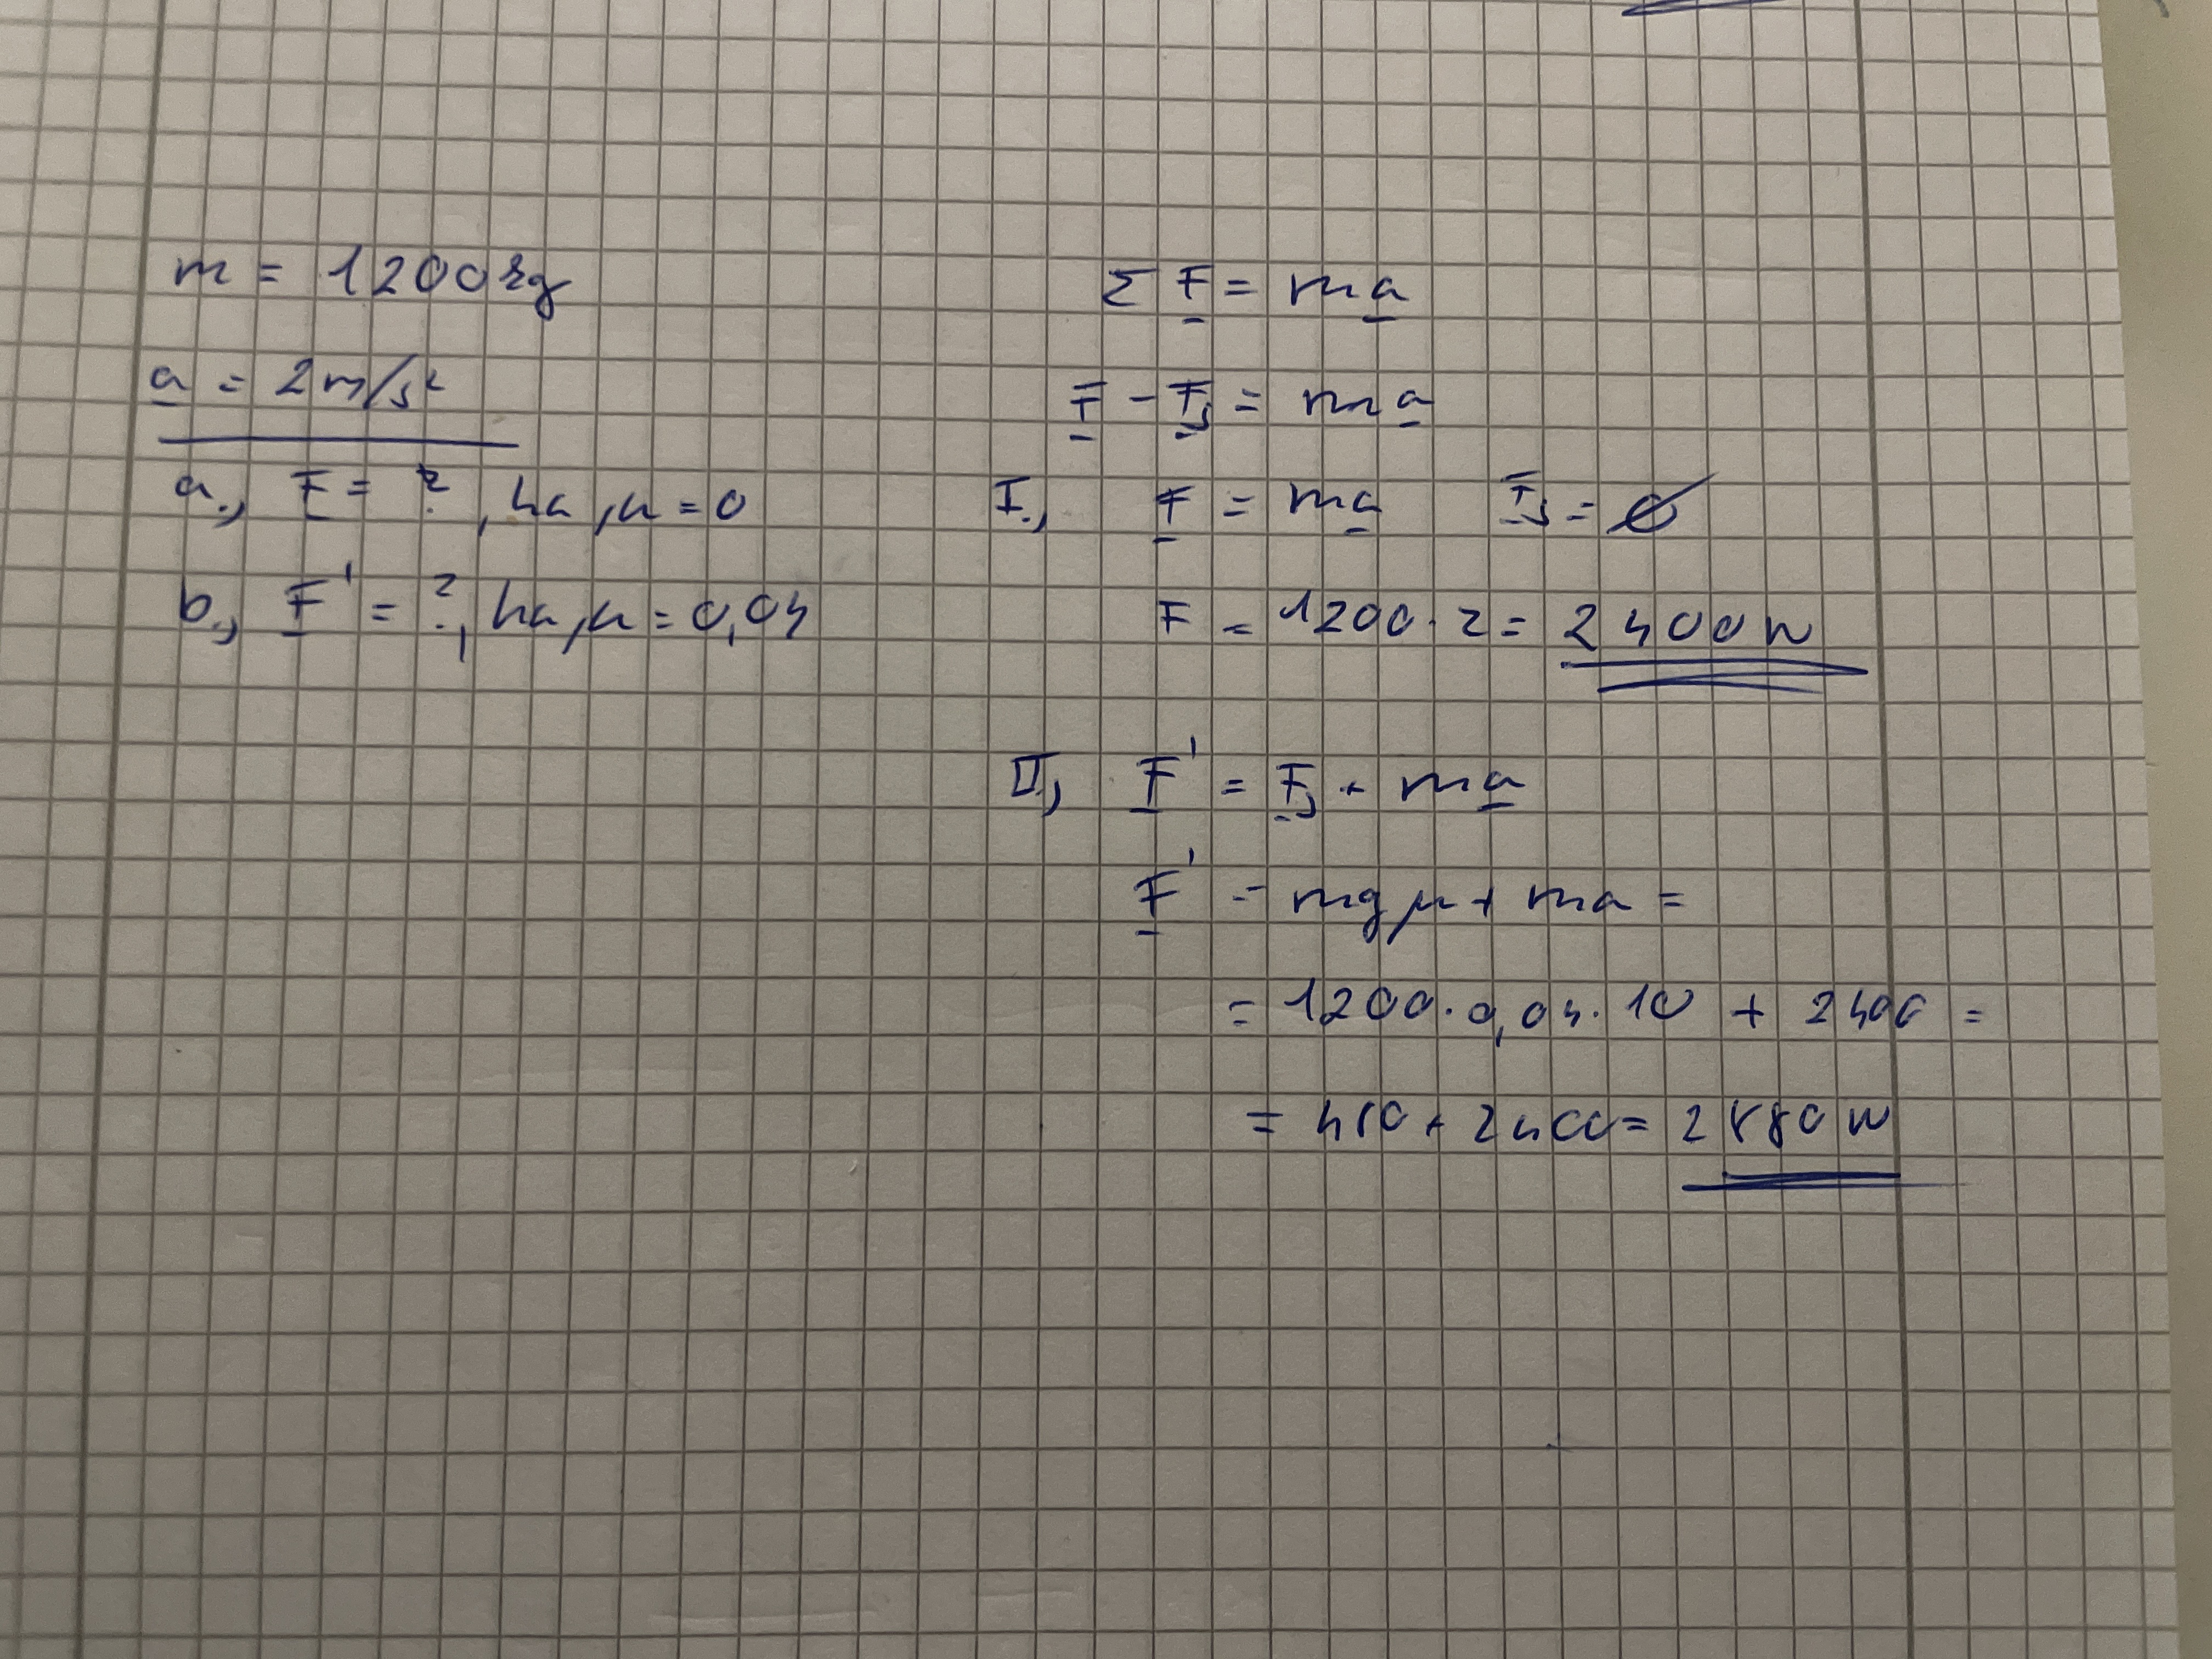 m = 1200 kg
a = 2 m/s²
a., F = ?, ha μ = 0
b., F' = ?, ha μ = 0,04
Σ F = ma
F - Fs = ma
I., F = ma Fs = 0
F = 1200 · 2 = 2400 N
II., F' = Fs + ma
F' = mg μ + ma =
= 1200 · 0,04 · 10 + 2400 =
= 480 + 2400 = 2880 N